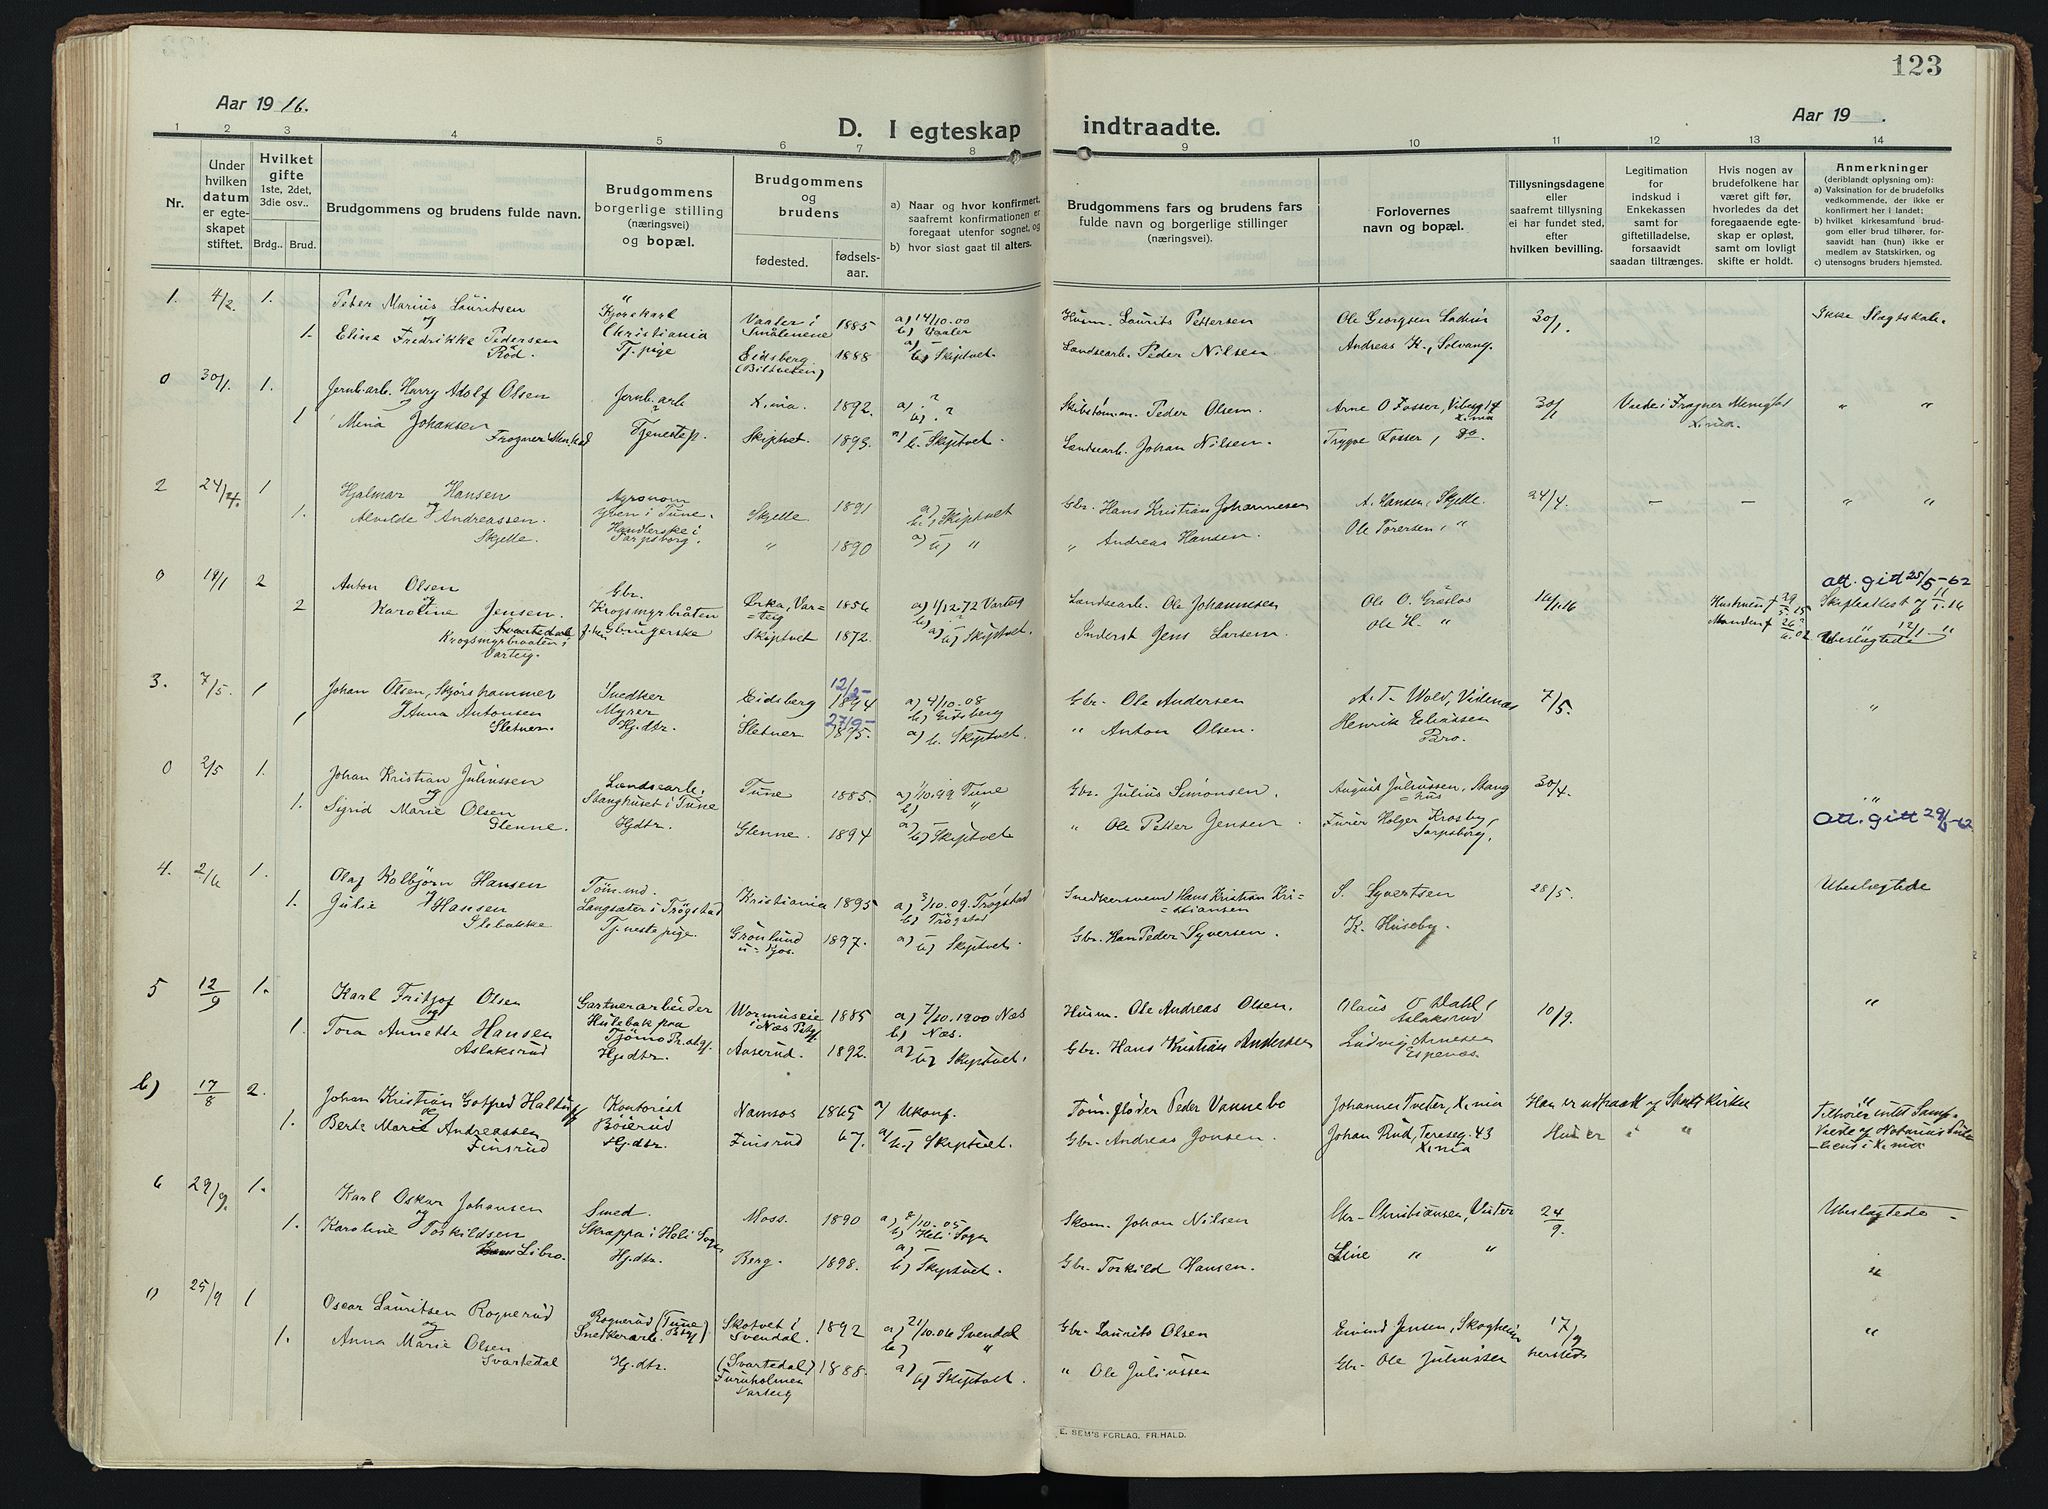 123
Aar 19 16.
Aar 19 .
D. I egteskap indtraadte.
1 2 3 4 5 6 7 8 9 10 11 12 13 14
Nr.
Under hvilken datum er egteskapet stiftet.
Hvilket gifte
1ste, 2det, 3die osv..
Brdg.. Brud.
Brudgommens og brudens fulde navn.
Brudgommens borgerlige stilling (næringsvei) og bopæl.
Brudgommens og brudens
fødested.
fødselsaar.
a) Naar og hvor konfirmert, saafremt konfirmationen er foregaat utenfor sognet, og
b) hvor sidst gaat til alters.
Brudgommens fars og brudens fars fulde navn og borgerlige stillinger (næringsvei).
Forlovernes navn og bopæl.
Tillysningsdagene eller saafremt tillysning ei har fundet sted, efter hvilken bevilling.
Legitimation for indskud i Enkekassen samt for giftetilladelse, forsaavidt saadan tiltrænges.
Hvis nogen av brudefolkene har været gift før, hvorledes da det foregaaende egteskap er opløst, samt om lovligt skifte er holdt.
Anmerkninger
(deriblandt oplysning om):
a) Vaksination for de brudefolks vedkommende, der ikke er konfirmert her i landet;
b) hvilket kirkesamfund brudgom eller brud tilhører, forsaavidt han (hun) ikke er medlem av Statskirken, og
c) utensogns bruders hjemsted.
1. 4/2 1. Peter Marius Lauritsen Kjørekarl Christiania Vaaler i Smålenene 1885 a) 14/10.00 b) Vaaler Husm. Laurits Pettersen Ole Georgsen 30/1. Ikke Slagtskab.
og
1. Eline Fredrikke Pedersen Rød. Tj.pige Eidsberg (Biltveten) 1888 a) b) Skiptvet Landsearb. Peder Nilsen Andreas K., Solvang.
0 30/1. 1. Jernb.arb. Harry Adolf Olsen Jernb.arb X.nia. 1892. a) ? b) ? Peder Olsen Arne O Fosser, X.nia 30/1 Viede i Frogner Menighet X.nia. " "
og
1 Mena Johansen Tjenestep. Skiptvet 1893. a) b. Skiptvet Landsearb. Johan Nilsen. Trygve Fosser, Do.
2 24/4. 1 Hjalmar Hansen Agronom i Tune. Skjelle 1891 a) b) Skiptvet Gbr. Hans Kristian Johannesen A. Hansen, Skjelle. 24/4. — — " "
og
1. Alvilde Andreassen. Skjelle. Handlerske i Sarpsborg. " 1890 a) b) " " Andreas Hansen. Ole Torersen, "
0 19/1 2 Anton Olsen Gbr. Krogsmyrbråten Varteig 1856 a) 1/12.72 Varteig b) Landsearb. Ole Johannesen Ole O. 16/1.16 Att. gitt 25/5-62
og
2 Karoline Jensen. Svartedal Krogsmyrbraaten i Varteig. Skiptvet 1872. a) b) Skiptvet. Inderst Jens Larsen Ole H. " Ubeslægtede
3. 7/5. 1 Johan Olsen, Skjørshammer Snedker Myrer Eidsberg 12/2- 1894 a) 4/10.08 b) Eidsberg Gbr. Ole Andersen A. T. Wold, Videnæs 7/5. "
og
1 Anna Antonsen Sletner. Hj.dtr. Sletner 27/9- 1875. a) b. Skiptvet. " Anton Olsen. Henrik Eliassen Bro.
0 2/5 1. Johan Kristian Juliussen Landsearb. Stanghuset i Tune Tune 1885. a) 1/10.99 Tune b) " Gbr. Julius Simonsen. August Juliussen, Stanghus 30/4. "
og
1. Sigrid Marie Olsen Glenne. Hjdtr. Glenne. 1894 a) b) Skiptvet " Ole Petter Jensen Furer Holger Krosby, Sarpsborg. Att. gitt 29/ -62
4. 2/6 1. Olaf Kolbjørn Hansen Tøm.md. Langsæter i Trøgstad Kristiania 1895 a) 3/10.09. Trøgstad b) Trøgstad Snedkersvend Hans Kristian Kristiansen S. Syvertsen 28/5. Ubeslægtede
og
1. Julie Hansen Glebakke Tjenestepige. Grønlund 1897. a) b) Skiptvet. Gbr. Hans Peder Syversen. K. Huseby.
5 12/9 1. Karl Fritjof Olsen Gartnerarbeider Hulebak paa Tjømø i Næs 1885 a) 7/10.1900 Næs b) Næs. Husm. Ole Andreas Olsen. Olaus O Dahl, Aslaksrud 10/9. "
og
1. Tora Annette Hansen Aslaksrud Hj.dtr. Aaserud. 1892. a) b) Skiptvet. Gbr. Hans Kristian Andersen Ludvig Arnesen Espenæs.
b) 17/8 2. Johan Kristian Gotfred Kontorist Bøierud Namsos 1865 a) Ukonf. Tøm.fløder Peder Vannebo Johannes Tveter, X.nia Han er udtraadt af Statskirken "
og
1. Berte Marie Andreassen Finsrud Hj.dtr. Finsrud 67. a) b) Skiptvet. Gbr. Andreas Jonsen. Johan Rud, Tereseg. 43 X.nia Hun er i "
6 29/9. 1. Karl Oskar Johansen Smed. Skrappa i Heli Sogn Moss. 1890 a) 8/10.05 b) Heli Sogn Skom. Johan Nilsen Chr. Christiansen, 24/9. Ubeslægtede
og
1. Karoline Toskildsen Libro. Hj.dtr. Berg. 1898. a) b) Skiptvet. Gbr. Torkild Hansen. Line " " "
0 25/9 1 Oscar Lauritsen Rognerud Rognerud (Tune) Snekkerarb. Skotvet i Svendal 1892 a) 21/10.06 Svendal b) " Gbr. Laurits Olsen Eivind Jensen, Skogheim 17/9 "
og
1. Anna Marie Olsen Svartedal Hj.dtr. (Svartedal) Furuholmen Varteig 1888. a) b) Skiptvet. " Ole Juliussen Gbr. Ole Juliussen
E. SEM'S FORLAG. FR.HALD.